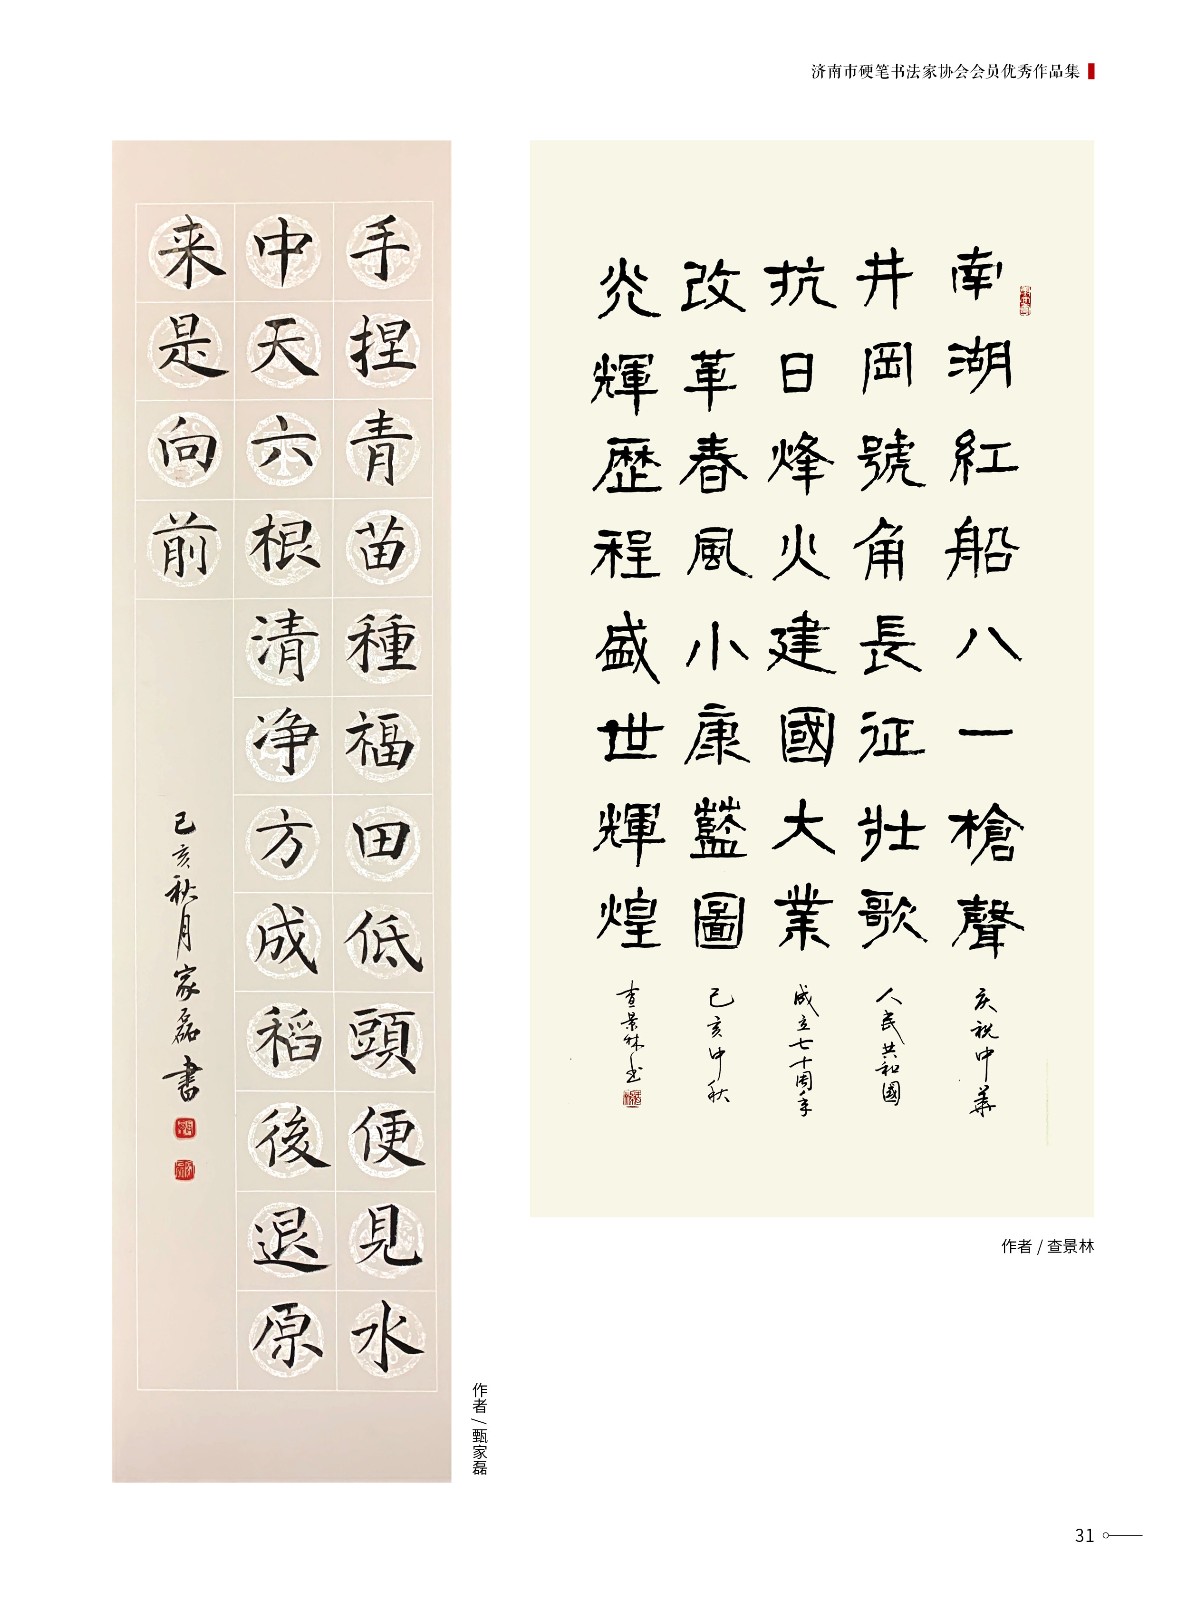 济南市硬笔书法家协会会员优秀作品集
手捏青苗種福田低頭便見水
中天六根清净方成稻後退原
来是向前
己亥秋月家磊書
作者/甄家磊
南湖紅船八一槍聲
井岡號角長征壯歌
抗日烽火建國大業
改革春風小康藍圖
光輝歷程盛世輝煌
庆祝中華
人民共和國
成立七十周年
己亥中秋
查景林书
作者 / 查景林
31